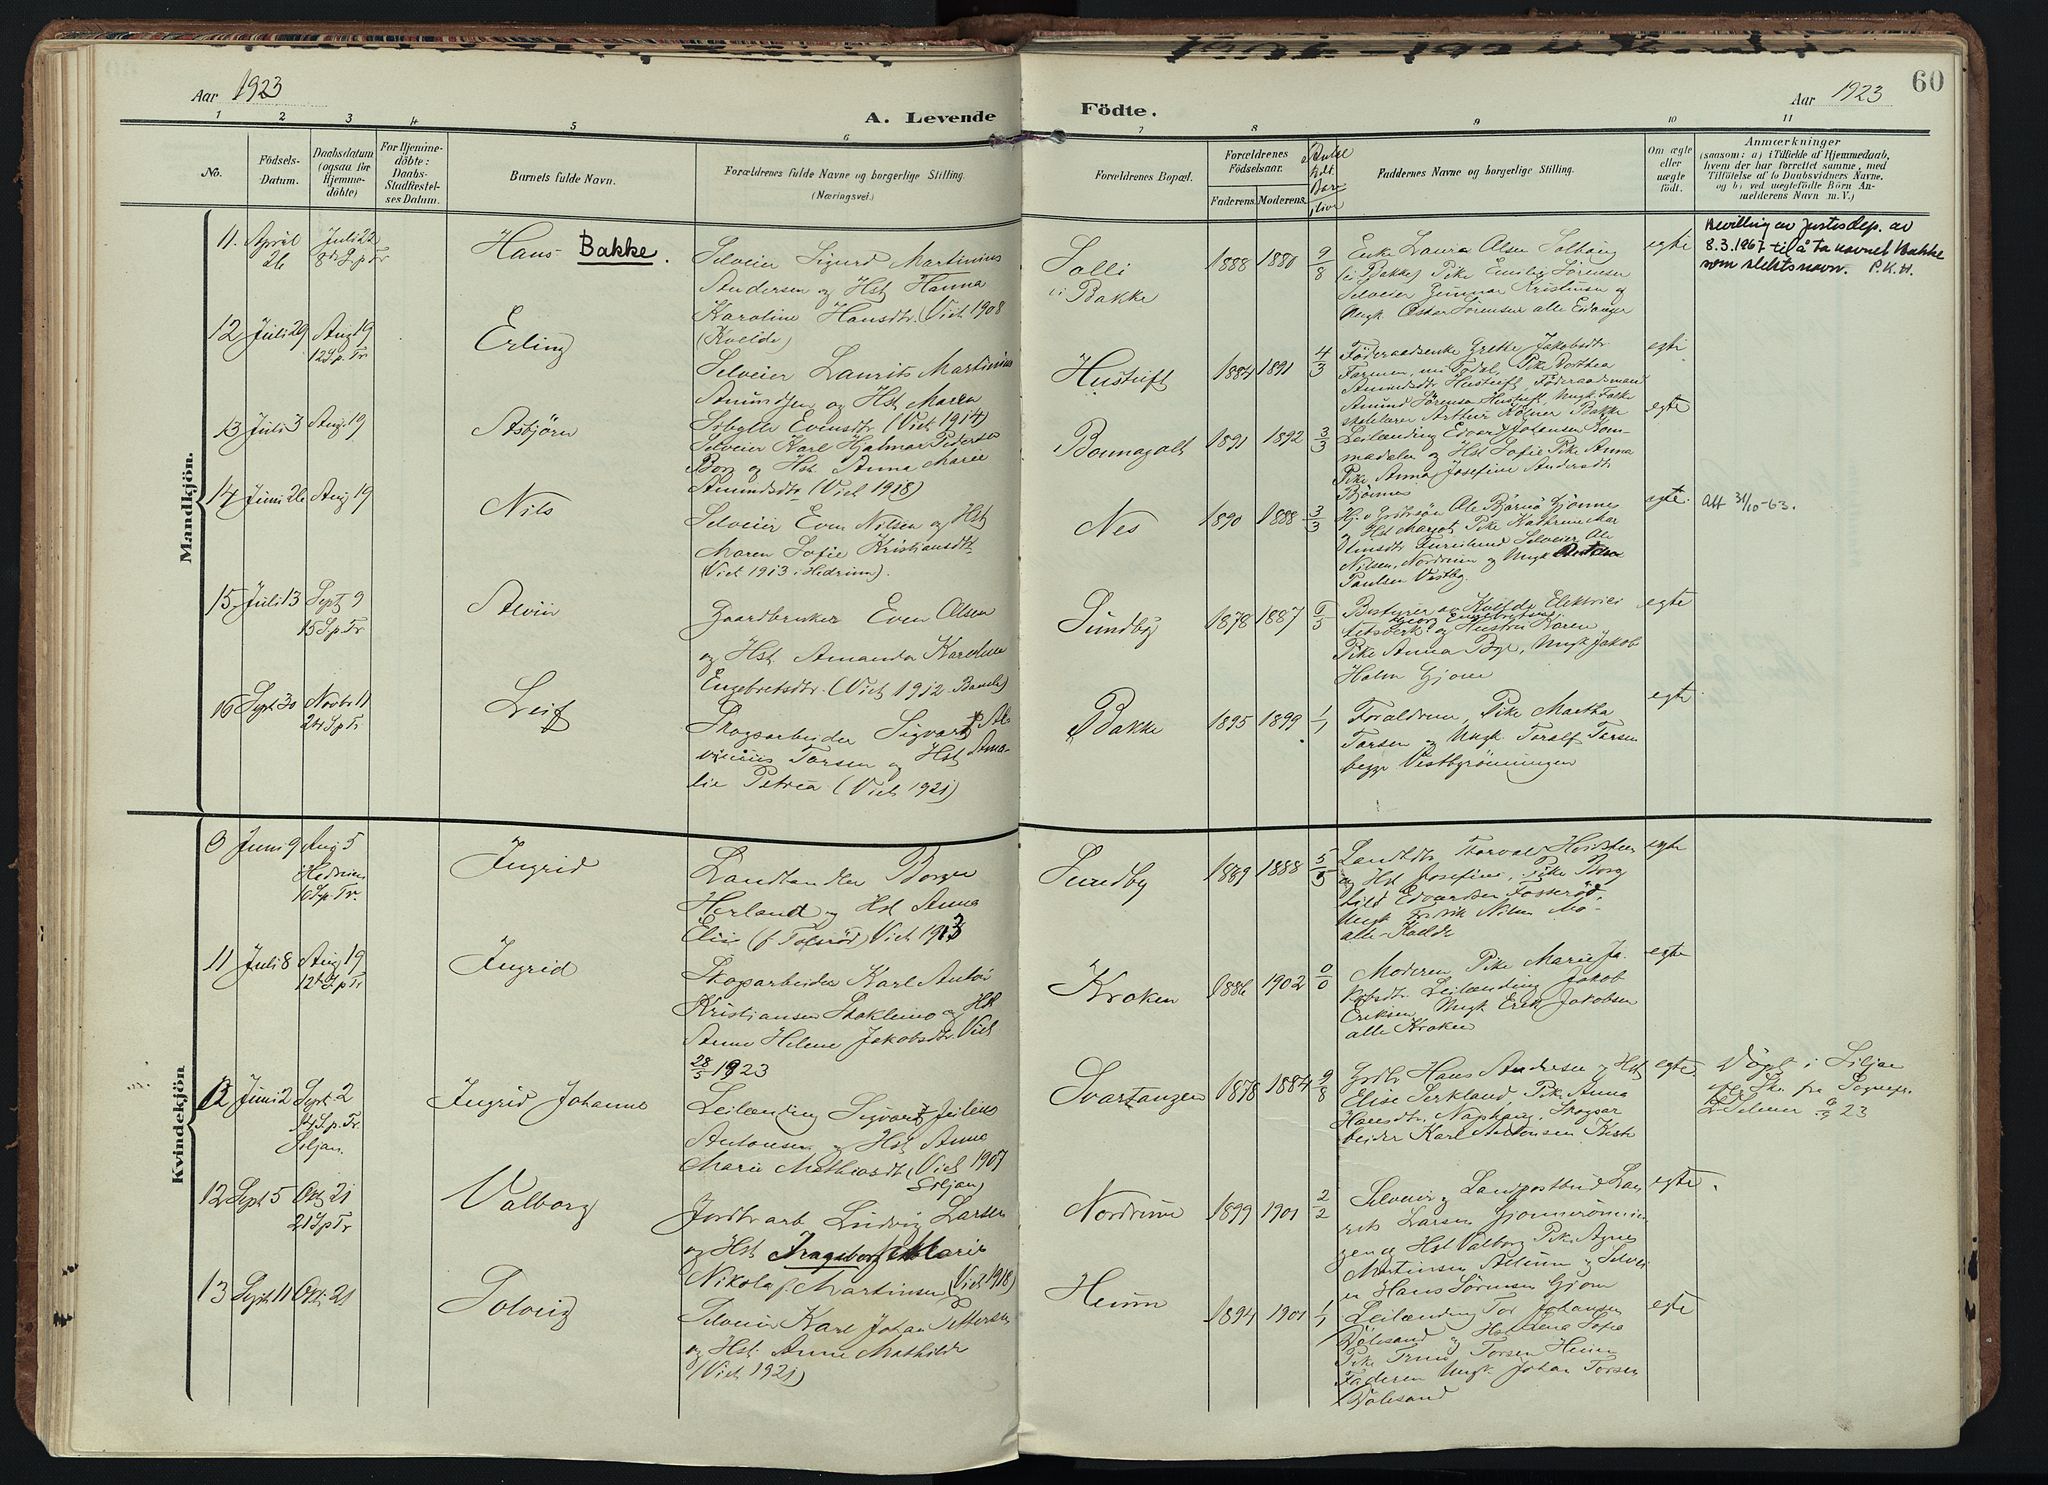 Aar 1923
A. Levende
Födte.
Aar 1923
60
1 2 3 4 5 6 7 8 9 10 11
No.
Födsels-
Datum.
Daabsdatum
(ogsaa for
Hjemme-
döbte)
For Hjemme-
döbte:
Daabs-
Stadfæstel-
ses Datum.
Barnets fulde Navn.
Forældrenes fulde Navne og borgerlige Stilling.
(Næringsvei.)
Forældrenes Bopæl.
Forældrenes
Födselsaar.
Faderens. Moderens.
Faddernes Navne og borgerlige Stilling.
Om ægte
eller
uægte
födt.
Anmærkninger
(saasom: a) i Tilfælde af Hjemmedaab,
hvem der har forrettet samme, med
Tilföielse af to Daabsvidners Navne.
og b) ved uægtefödte Börn An-
melderens Navn m. V.)
Mandkjön.
11. April
26
Juli 22
8de S.p. Tr
Hans Bakke.
Selveier Sigurd Martinius
Andersen og Hst Hanna
Karoline Hansdtr. (Viet 1908
(Kvelde)
Solli
i Bakke
1888 1880 9/8
Enke Laura Olsen
(i Bakke) Pike Emilie Sörensen
Selveier Gunnar Kristensen og
Ungk Oskar Sörensen alle Eidanger
egte
Bevilling av Justisdep. av
8.3.1967 til å ta navnet Bakke
som slektsnavn. P.K.H.
12 Juli 29 Aug 19
12 S.p. Tr
Erling
Selveier Laurits Martinius
Amundsen og Hst Maren
Sibylle Evensdtr (Viet 1914)
Hustuft
1884 1891 4/3
Föderaadsenke Grethe Jakobsdtr
Farmen, Pike Dorthea
Amundsdtr Hustuft, Föderaadsmand
Amund Sörensen Hustuft, Ungk
Arthur Bakke
egte
13 Juli 3 Aug 19
Asbjörn
Selveier Karl Hjalmar Pedersen
Borg og Hst Anna Marie
Amundsdtr (Viet 1918)
1891 1892 3/3
Leilænding Edvard Johansen Rom-
og Hst Sofie Pike Anna
Pike Anna Josefine Andersdtr
Björnnes
egte
14 Juni 26 Aug 19
Nils
Selveier Even Nilsen og Hst
Maren Sofie Kristiansdtr
(Viet 1913 i Hedrum).
Nes
1890 1888 3/3
Ole Gjönnes
og Hst Margot Pike Kathrine Mar
Selveier Ole
Nilsen, Nordrum og Ungk
Paulsen Vestby.
egte.
Att 31/10-63.
15 Juli 13 Sept 9
15 S.p. Tr
Gaardbruker Even Olsen
og Hst Amanda Karoline
Engebretsdtr. (Viet 1912 Bamble)
Sundby
1878 1887 6/5
Bestyrer av Kvelde Elektrici
tetsverk og Hustru Karen
Pike Anna Bye, Ungk Jakob
Holm Gjone
egte
16 Sept 30 Novbr 11
24 S.p. Tr.
Leif
Skogsarbeider Sigvart Al
Torsen og Hst Ama-
lie Petrea (Viet 1921)
Bakke
1895 1899 1/1
Foraldrene, Pike Martha
Torsen og Ungk. Toralf Torsen
begge Vestbyrönningen
egte
Kvindekjön
9 Juni 9 Aug 5
Hedrum
10 S.p. Tr.
Ingrid
Landhandler Borger
Herland og Hst Anna
Elise (f Tolsröd) Viet 1913
Sundby
1889 1888 5/5
Landhdlr Thorvald
og Hst Josefine, Pike Borg
hild Edvardsen
Ungk Fredrik Nilsen Mo-
alle Kvelde
egte
11 Juli 8 Aug 19
12te S.p. Tr
Ingrid
Skogarbeider Karl Anton
Kristiansen og Hst
Anne Helene Jakobsdtr Viet
28/5 1923
Kroken
1886 1902 0/0
Moderen Pike Marie Ja-
kobsdtr. Leilænding Jakob
Eriksen, Ungk Erik Jakobsen
alle Kroken
egte
12 Juni 2 Sept 2
14 S.p. Tr.
Siljan.
Ingrid Johanne
Leilænding Sigvart Julius
Antonsen og Hst Anna
Marie Mathiasdtr (Viet 1907
Siljan)
Svartangen
1878 1884 9/8
Grdbr Hans Andersen og Hst
Elise Sirkland, Pike Anna
Hansdtr. Naphaug, Skogsar
beider Karl Antonsen Kiste
egte
Döpt i Siljan
fra Sognepr.
23
12 Sept 5 Okt 21
21 S.p Tr
Valborg
Jordbr arb Ludvig Larsen
og Hst Ingeborg Marie
Nikola f. Martinsen (Viet 1918)
Nordrum
1899 1901 2/2
Selveier og Landpostbud Lau
rits Larsen Gjönnesrönnin
gen og Hst Valborg Pike Agnes
Martinsen og Selvei
er Hans Sörensen Gjone
egte.
13 Sept 11 Okt 21
Solveig
Selveier Karl Johan Pettersen
og Hst. Anne Mathilde
(Viet 1921)
Heum
1894 1901 1/1
Leilænding Tor Johansen
og Hst Lena Sofie
Pike Torsen Heum
Faderen Ungk. Johan Torsen
egte